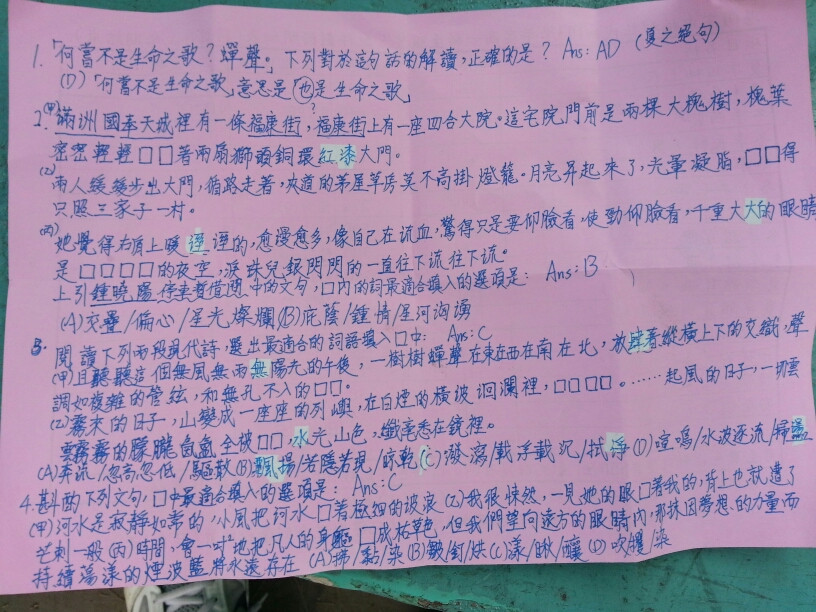 1.「何嘗不是生命之歌？蟬聲。」下列對於這句話的解讀，正確的是？ Ans：AD（夏之絕句）
(D)「何嘗不是生命之歌」意思是「也是生命之歌」
2.(甲)滿洲國奉天城裡有一條福康街，福康街上有一座四合大院。這宅院門前是兩棵大槐樹，槐葉
密密輕輕□□著兩扇獅頭銅環紅漆大門。
(乙)兩人緩緩步出大門，循路走著，夾道的茅屋草房莫不高掛燈籠。月亮昇起來了，光暈凝脂，□□得
只照三家子一村。
(丙)她覺得右頂上暖逕逕的，愈漫愈多，像自己在流血，驚得只是要仰臉看，使勁仰臉看，千重大大的眼睛
是□□□□的夜空，淚珠兒銀閃閃的一直往下流往下流。
上引鍾曉陽停車暫借問中的文句，□內的詞最適合填入的選項是： Ans：B
(A)交疊/偏心/星光燦爛(B)庇蔭/鍾情/星河洶湧
3.閱讀下列兩段現代詩，選出最適合的詞語填入□中： Ans：C
(甲)且聽聽這個無風無雨無陽光的午後，一樹樹蟬聲在東在西在南在北，放肆著縱橫上下的交織，聲
調如複雜的管絃，和無孔不入的□□。
(乙)霧來的日子，山變成一座座的列嶼，在白煙的橫波迴瀾裡，□□□□。……起風的日子，一切雲
雲霧霧的朦朧氤氳全被□□，水光山色，纖毫悉在鏡裡。
(A)奔流/忽高忽低/驅散(B)飄揚/若隱若現/晾乾(C)潑瀉/載浮載沉/拭淨(D)喧鳴/水波逐流/掃盪
4.斟酌下列文句，□中最適合填入的選項是： Ans：C
(甲)河水是寂靜如常的，小風把河水□著極細的波浪(乙)我很悚然，一見她的眼□著我的，背上也就遭了
芒刺一般(丙)時間，會一吋吋地把凡人的身軀□成枯草色，但我們望向遠方的眼睛內，那抹因夢想的力量而
持續蕩漾的煙波藍將永遠存在(A)掃/黏/染(B)皺/釘/烘(C)漾/瞅/釀(D)吹/